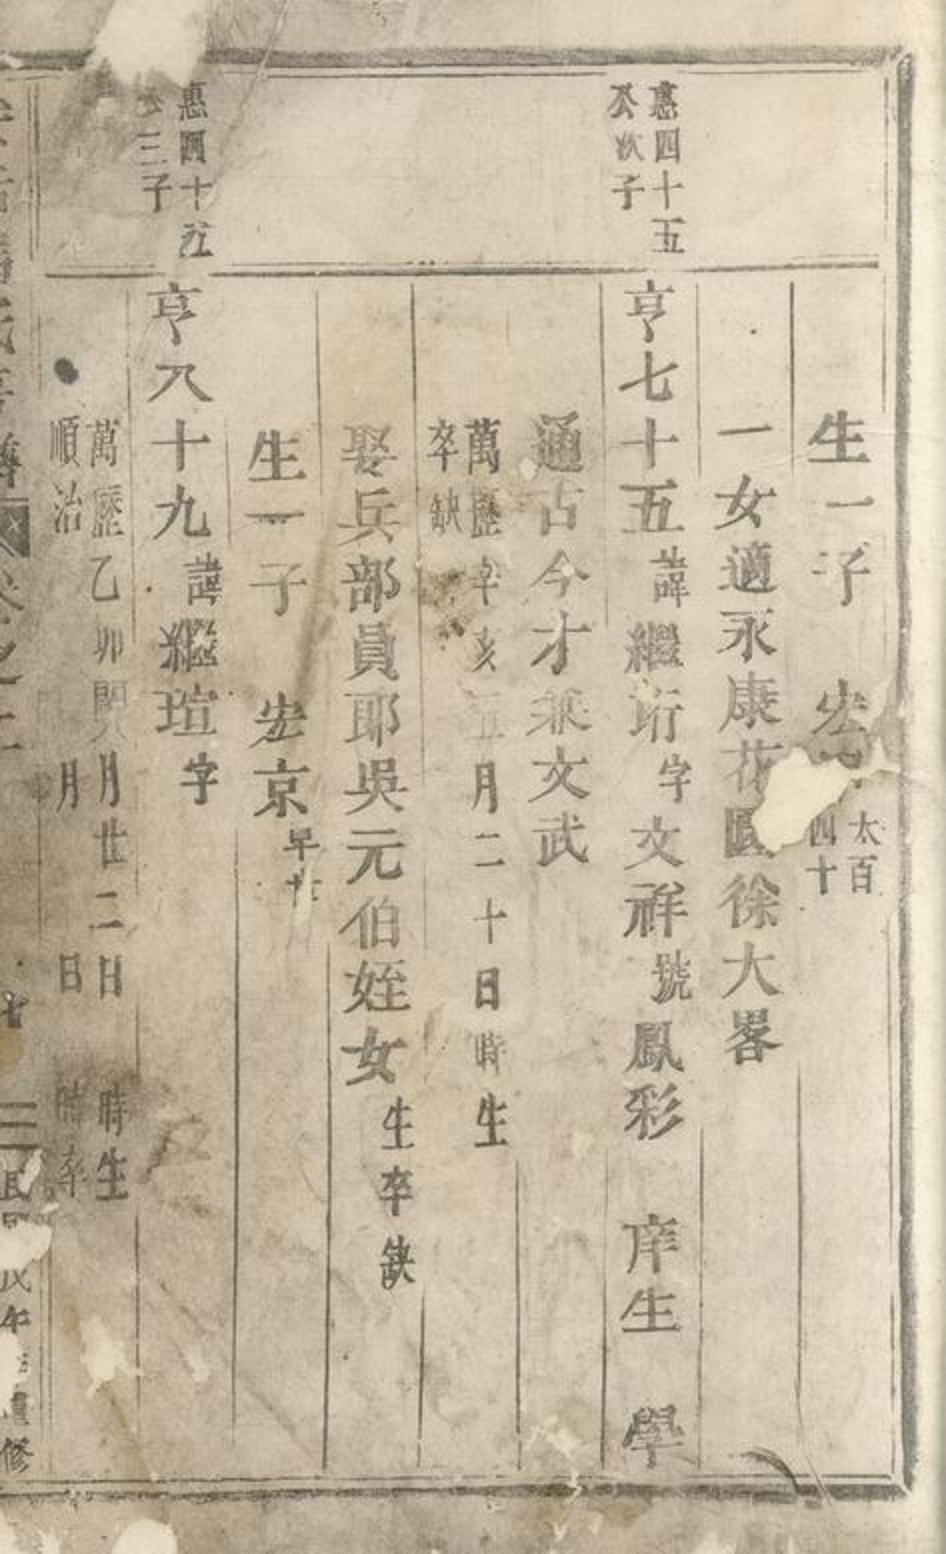 生一子 宏 太百四十
一女適永康花園徐大畧
惠四十五
公次子
亨七十五諱繼珩字文祥號鳳彩 庠生 學
通古今才兼文武
萬歷辛亥五月二十日時生
卒缺
娶兵部員耶吳元伯姪女生卒缺
生一子 宏京早亡
惠四十五
公三子
亨八十九諱繼瑄字
萬歷乙卯閏八月廿二日 時生
順治 月 日 時卒
卷之十
七
三
民國戊午年重修